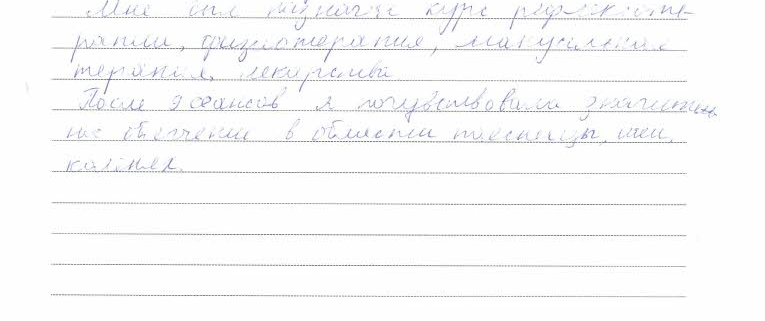 Мне был назначен курс рефлексоте-
рапии, физиотерапия, мануальная
терапия, лекарства
После 9 сеансов я почувствовала значитель-
ное облегчение в области поясницы, шеи,
коленей.